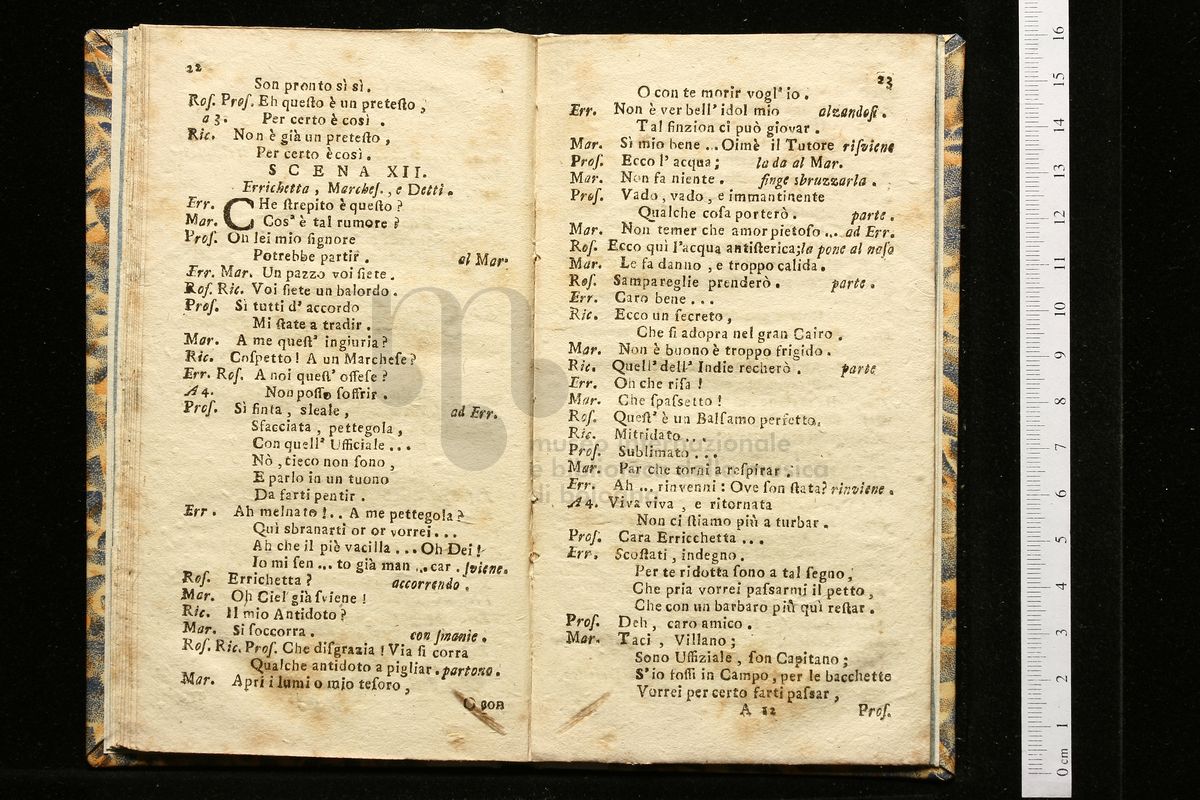 22
Son pronto sì sì.
Roſ. Proſ. Eh queſto è un preteſto,
a 3. Per certo è così.
Ric. Non è già un preteſto,
Per certo è così.
SCENA XII.
Errichetta, Marcheſ., e Detti.
Err. CHe ſtrepito è queſto?
Mar. Cos' è tal rumore?
Proſ. Oh lei mio ſignore
Potrebbe partir. al Mar.
Err. Mar. Un pazzo voi ſiete.
Roſ. Ric. Voi ſiete un balordo.
Proſ. Sì tutti d' accordo
Mi ſtate a tradir.
Mar. A me queſt' ingiuria?
Ric. Coſpetto! A un Marcheſe?
Err. Roſ. A noi queſt' offeſe?
A 4. Non poſſo ſoffrir.
Proſ. Sì finta, sleale, ad Err.
Sfacciata, pettegola,
Con quell' Ufficiale...
Nò, tieco non ſono,
E parlo in un tuono
Da farti pentir.
Err. Ah melnato!.. A me pettegola?
Quì sbranarti or or vorrei...
Ah che il piè vacilla... Oh Dei!
Io mi ſen... to già man... car. ſviene.
Roſ. Errichetta? accorrendo.
Mar. Oh Ciel già ſviene!
Ric. Il mio Antidoto?
Mar. Si ſoccorra. con ſmanie.
Roſ. Ric. Proſ. Che diſgrazia! Via ſi corra
Qualche antidoto a pigliar. partono.
Mar. Apri i lumi o mio teſoro,
O con
23
O con te morir vogl' io.
Err. Non è ver bell' idol mio alzandoſi.
Tal finzion ci può giovar.
Mar. Sì mio bene.. Oimè il Tutore riſviene
Proſ. Ecco l' acqua; la da al Mar.
Mar. Non fa niente. finge sbruzzarla.
Proſ. Vado, vado, e immantinente
Qualche coſa porterò. parte.
Mar. Non temer che amor pietoſo... ad Err.
Roſ. Ecco quì l'acqua antiſterica; la pone al naſo
Mar. Le fa danno, e troppo calida.
Roſ. Sampareglie prenderò. parte.
Err. Caro bene...
Ric. Ecco un ſecreto,
Che ſi adopra nel gran Cairo.
Mar. Non è buono è troppo frigido.
Ric. Quell' dell' Indie recherò. parte
Err. Oh che riſa!
Mar. Che ſpaſſetto!
Roſ. Queſt' è un Balſamo perfetto.
Ric. Mitridato...
Proſ. Sublimato...
Mar. Par che torni a reſpirar.
Err. Ah... rinvenni: Ove ſon ſtata? rinviene.
A 4. Viva viva, e ritornata
Non ci ſtiamo più a turbar.
Proſ. Cara Erricchetta...
Err. Scoſtati, indegno.
Per te ridotta ſono a tal ſegno,
Che pria vorrei paſſarmi il petto,
Che con un barbaro più quì reſtar.
Proſ. Deh, caro amico.
Mar. Taci, Villano;
Sono Uffiziale, ſon Capitano;
S'io foſſi in Campo, per le bacchette
Vorrei per certo farti paſſar,
A 12 Proſ.
museo internazionale
e biblioteca della musica
di bologna
0 cm 1 2 3 4 5 6 7 8 9 10 11 12 13 14 15 16